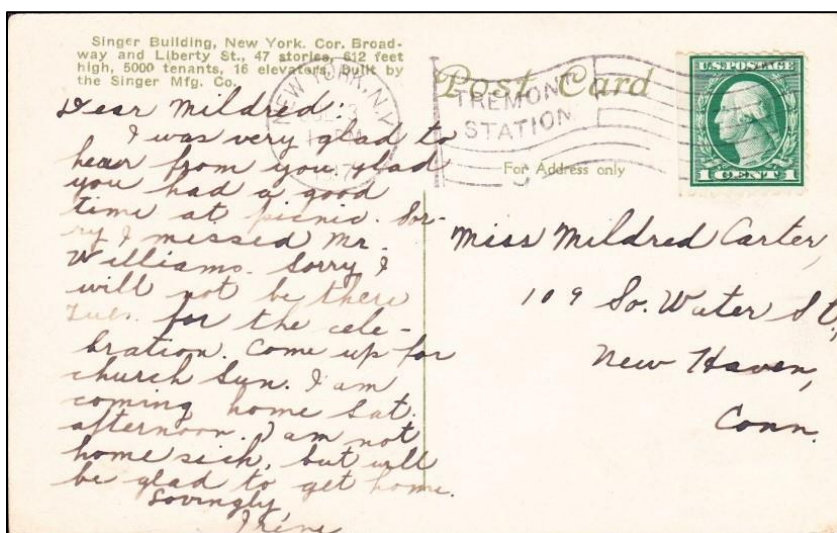 Singer Building, New York. Cor. Broad-
way and Liberty St., 47 stories, 612 feet
high, 5000 tenants, 16 elevators, Built by
the Singer Mfg. Co.
Post Card
NEW YORK, N.Y.
TREMONT
STATION
For Address only
U.S. POSTAGE
1 CENT 1
Dear Mildred:
I was very glad to
hear from you glad
you had a good
time at picnic. Sor-
ry I missed Mr.
Williams. Sorry I
will not be there
Tues. for the cele-
bration. Come up for
church Sun. I am
coming home Sat.
afternoon. I am not
home sick, but will
be glad to get home.
Lovingly,
Irene
Miss Mildred Carter,
109 So. Water St.,
New Haven,
Conn.